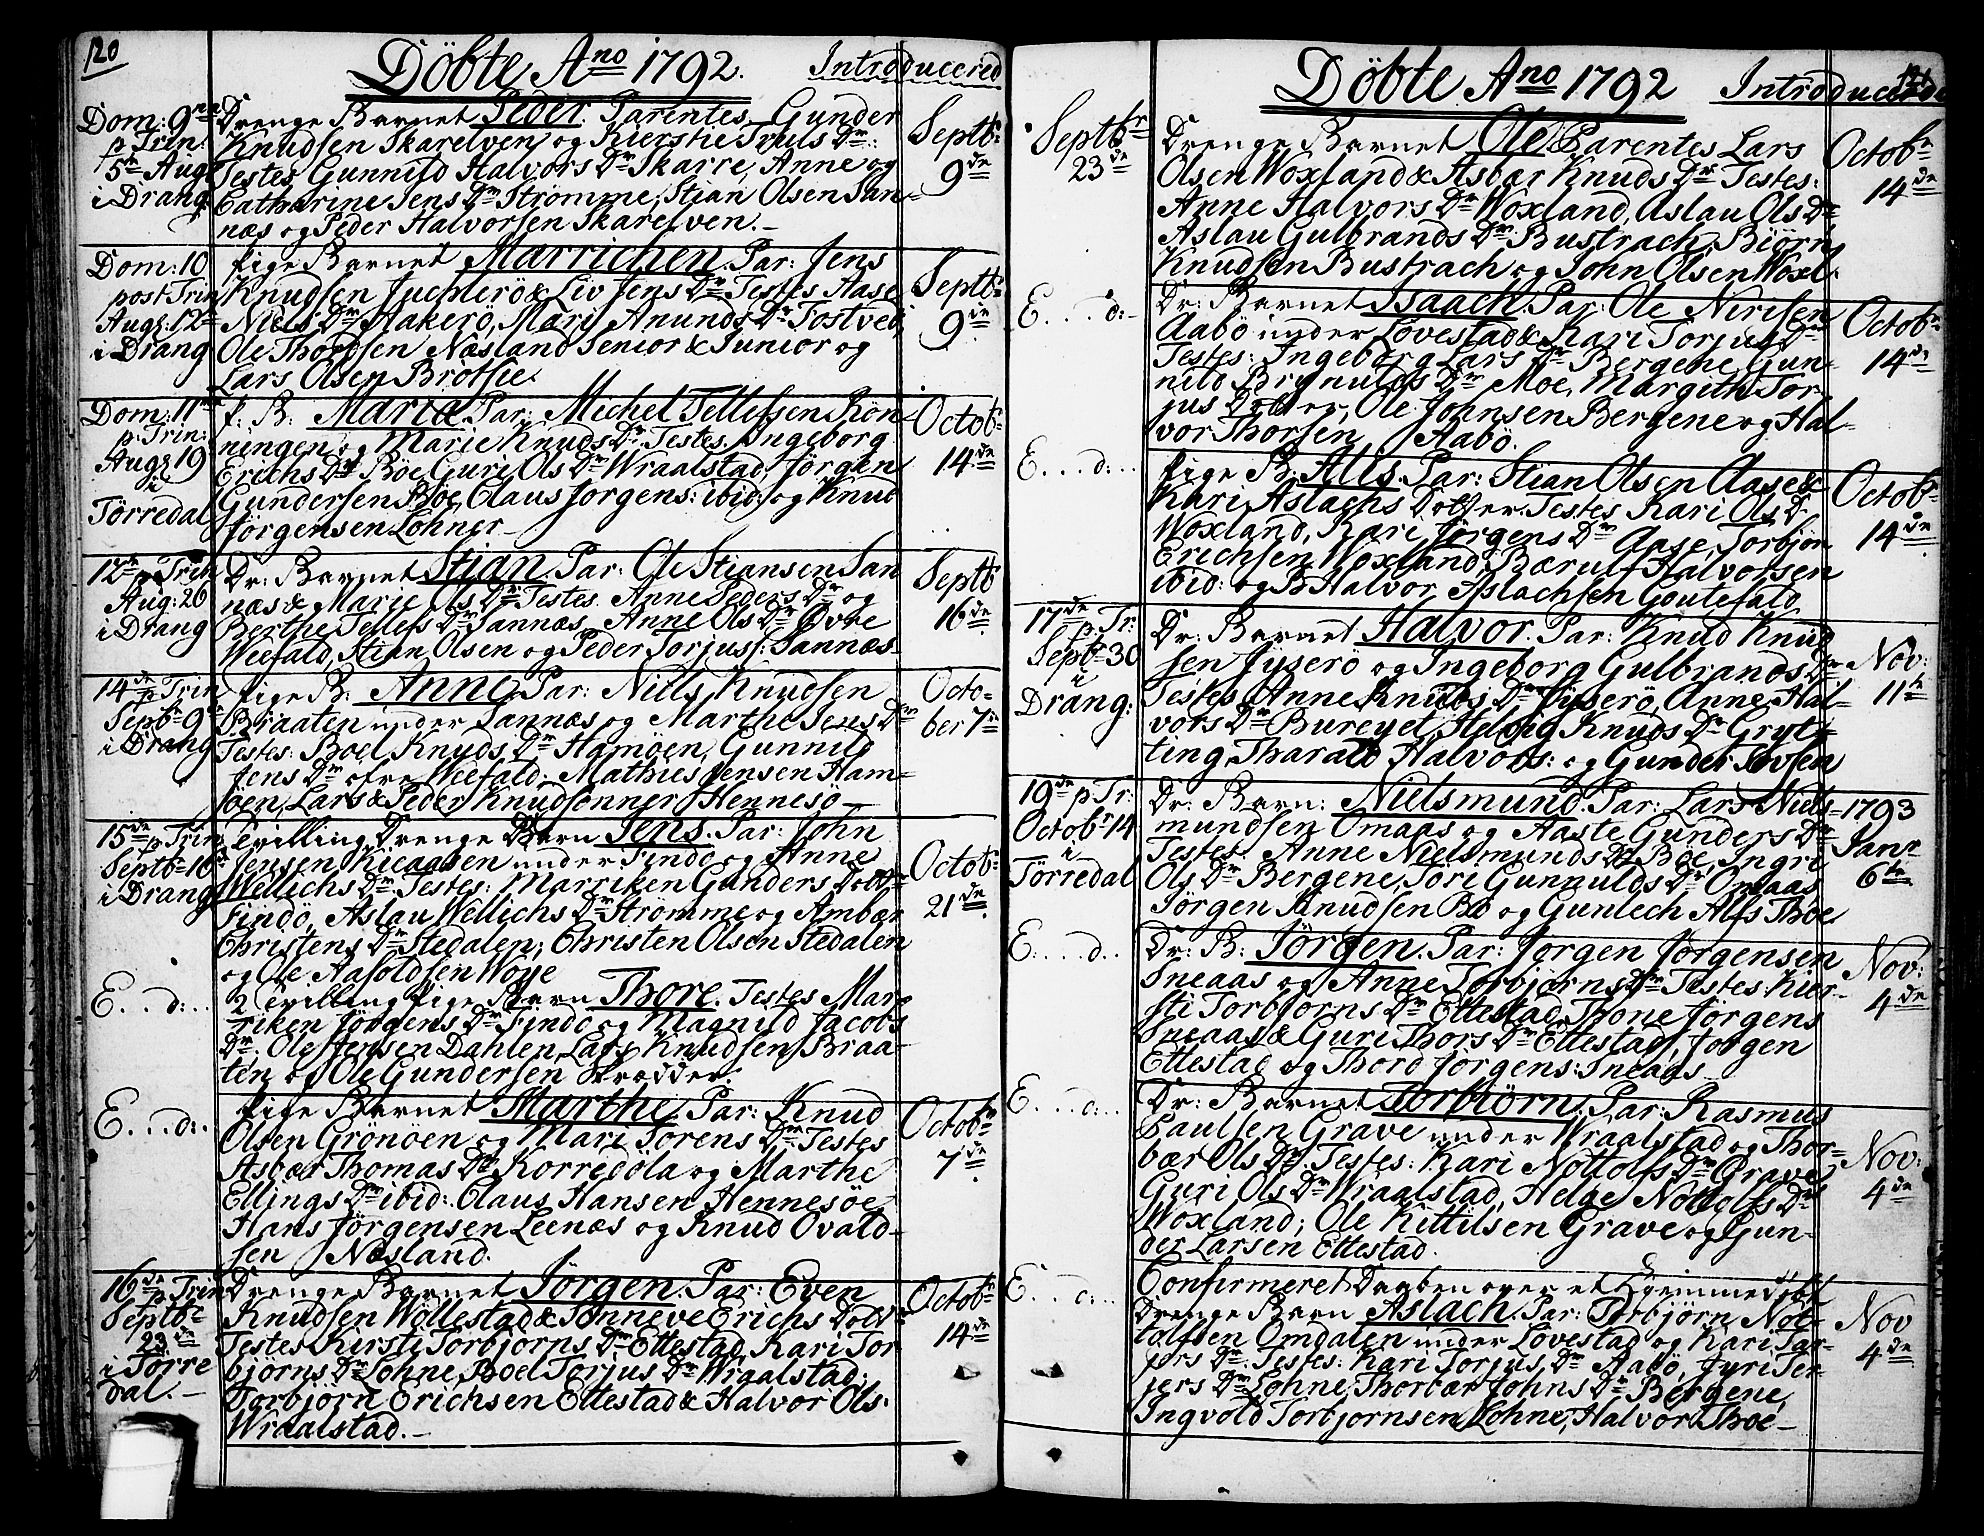 120
Döbte Ano 1792. Introduccered
Dom: 9na p Trin: 5te Aug i Drang
Drenge Barnet Peder. Parentes Gunder
Knudsen Skarelven og Kierstie Truls Dr:
Testes Gunnild Halvors Dr Skarre, Anne og
Catharine Jens Dr Strømme, Stian Olsen San-
næs og Peder Halvorsen Skarelven.
Septbr 9de
Dom: 10 post Trin Aug: 12te i Drang
Pige Barnet Marrichen. Par: Jens
Knudsen & Liv Jens Dr Testes Aase
Niels Dr Aakerö, Mari Anunds Dr Tostved,
Ole Thordsen Næsland Senior & Junior og
Lars Olsen Brotsie.
Septbr 9de
Dom: 11ma p Trin: Aug 19 i Törredal
P: B: Maria. Par: Michel Tellefsen Rön-
ningen og Marie Knuds Dr. Testes Ingeborg
Erichs Dr Böe, Guri Ols Dr Wraalstad, Jörgen
Gundersen Böe, Claus Jörgens: ibid: og Knud
Jörgensen Lohner
Octobr 14de
12te p Trin Aug: 26 i Drang
Dr: Barnet Stian. Par: Ole Stiansen San
næs & Marie Ols Dr Testes Anne Peders Dr og
Berthe Tellefs Dr Sannæs, Anne Ols Dr Övre
Weefald, Stian Olsen og Peder Torjuss: Sannæs
Septb 16de
14de p Trin Septbr 9de i Drang
Pige B: Anne. Par: Niels Knudsen
Braaten under Sannæs og Marthe Jens Dr
Testes: Boel Knuds Dr Hamöen, Gunnild
Jens Dr ofre Weefald. Mathies Jensen Ham-
öen, Lars & Peder Knudsönner Hennesö
October 7de
15de p Trin Septbr 16de i Drang
Tvilling Drenge Barn Jens. Par: John
Jensen under Findö og Anne
Wellichs Dr. Testes: Marriken Gunders Dotter
Findö, Aslau Wellichs Dr Strömme og Ambær
Christens Dr Stedalen; Christen Olsen Stedalen
og Ole Aasoldsen Woje
Octobr 21de
E...d:..
2 Tvilling Pige Barn Thore. Testes Mar-
riken Jörgens Dr Findö og Magnild Jacobs
Dr. Ole Jensen Dahlen, Lars Knudsen Braa-
ten og Ole Gundersen Skredder.
E...d:.
Pige Barnet Marthe. Par: Knud
Olsen Grönöen og Mari Sörens Dr Testes
Asbær Thomas Dr Korredöla og Marthe
Ellings Dr ibid: Claus Hansen Hennesöe
Hans Jörgensen Leenæs og Knud Ovald-
sen Næsland.
Octobr 7de
16de p Trin Septbr 23de i Törredal.
Drenge Barnet Jörgen. Par: Even
Knudsen Wöllestad & Sönneve Erichs Dottr
Testes Kirsti Torbjörns Dr Ettestad, Kari Tor
björns Dr Lohne, Boel Torjus Dr Wraalstad;
Torbjörn Erichsen Ettestad & Halvor Ols:
Wraalstad.
Octobr 14de
121
Döbte Ano 1792 Introduccered
Septbr 23de
Drenge Barnet Ole. Parentes Lars
Olsen Woxland & Asbær Knuds Dr Testes:
Anne Halvors Dr Woxland, Aslau Ols Dr
Aslau Gulbrands Dr Bustrach, Biörn
Knudsen Bustrach og John Olsen Woxl.
Octobr 14de
E...d:
Dr: Barnet Isaach. Par: Ole Nirisen
Aabö under Lövestad & Kari Torjus Dr
Testes: Ingeborg Lars Dr Bergene, Gun-
nild Brynulds Dr Moe, Margith Tor-
jus Dotter, Ole Johnsen Bergene og Hal-
vor Thorsen Aabö.
Octobr 14de
E...d:..
Pige B: Alis. Par: Stian Olsen Aase &
Kari Aslachs Dotter. Testes Kari Ols Dr
Woxland, Kari Jörgens Dr Aase, Torbjörn
Erichsen Woxland, Bærulf Halvorsen
ibid: og Halvor Aslachsen Goutefald
Octobr 14de
17de p Tr: Septbr 30 i Drang:
Dr: Barnet Halvor. Par: Knud Knud
sen Jyserö og Ingeborg Gulbrands Dr
Testes Anne Knuds Dr Jyserö, Anne Hal-
vors Dr Bureyet, Helvig Knuds Dr Gryt-
ting, Tharald Halvors: og Gunder Tovsen
Nov: 11te
19de p Tr: Octobr 14 i Törredal
Dr: Barn: Nielsmund. Par: Lars Niels-
mundsen Omaas og Aaste Gunders Dr
Testes: Anne Nielsmunds Dr Böe, Ingri
Ols Dr Bergene, Tori Gunnulds Dr Omaas
Jörgen Knudsen Bö og Gunlech Alfs Thöe
1793 Janr 6te
E:...d..
Dr: B: Jörgen. Par: Jörgen Jörgensen
Sneaas og Anne Torbjörns Dr Testes Kier-
sti Torbjörns Dr Ettestad, Thone Jörgens
Sneaas & Guri Thors Dr Ettestad, Jörgen
Ettestad og Thord Jörgens: Sneaas
Nov: 4de
E...d:..
Dr: Barnet Torbiörn. Par: Rasmus
Paulsen Grave under Wraalstad og Thor-
bær Ols Dr. Testes: Kari Nottolfs Dr Grave,
Guri Ols Dr Wraalstad, Helge Nottolfs Dr
Woxland; Ole Kittilsen Grave og Gun-
der Larsen Ettestad.
Nov: 4de
E...d:..
Confirmeret Daaben over et Hjemmedöbt
Drenge Barn Aslach. Par: Torbjörn Not-
tolfsen Omdalen under Lövestad og Kari Tar-
jers Dr. Testes: Kari Torjus Dr Aabö, Jyri Ter-
jers Dr Lohne, Thorbær Johns Dr Bergene,
Ingvold Torbjörnsen Lohne, Halvor Thöe
Nov 4de